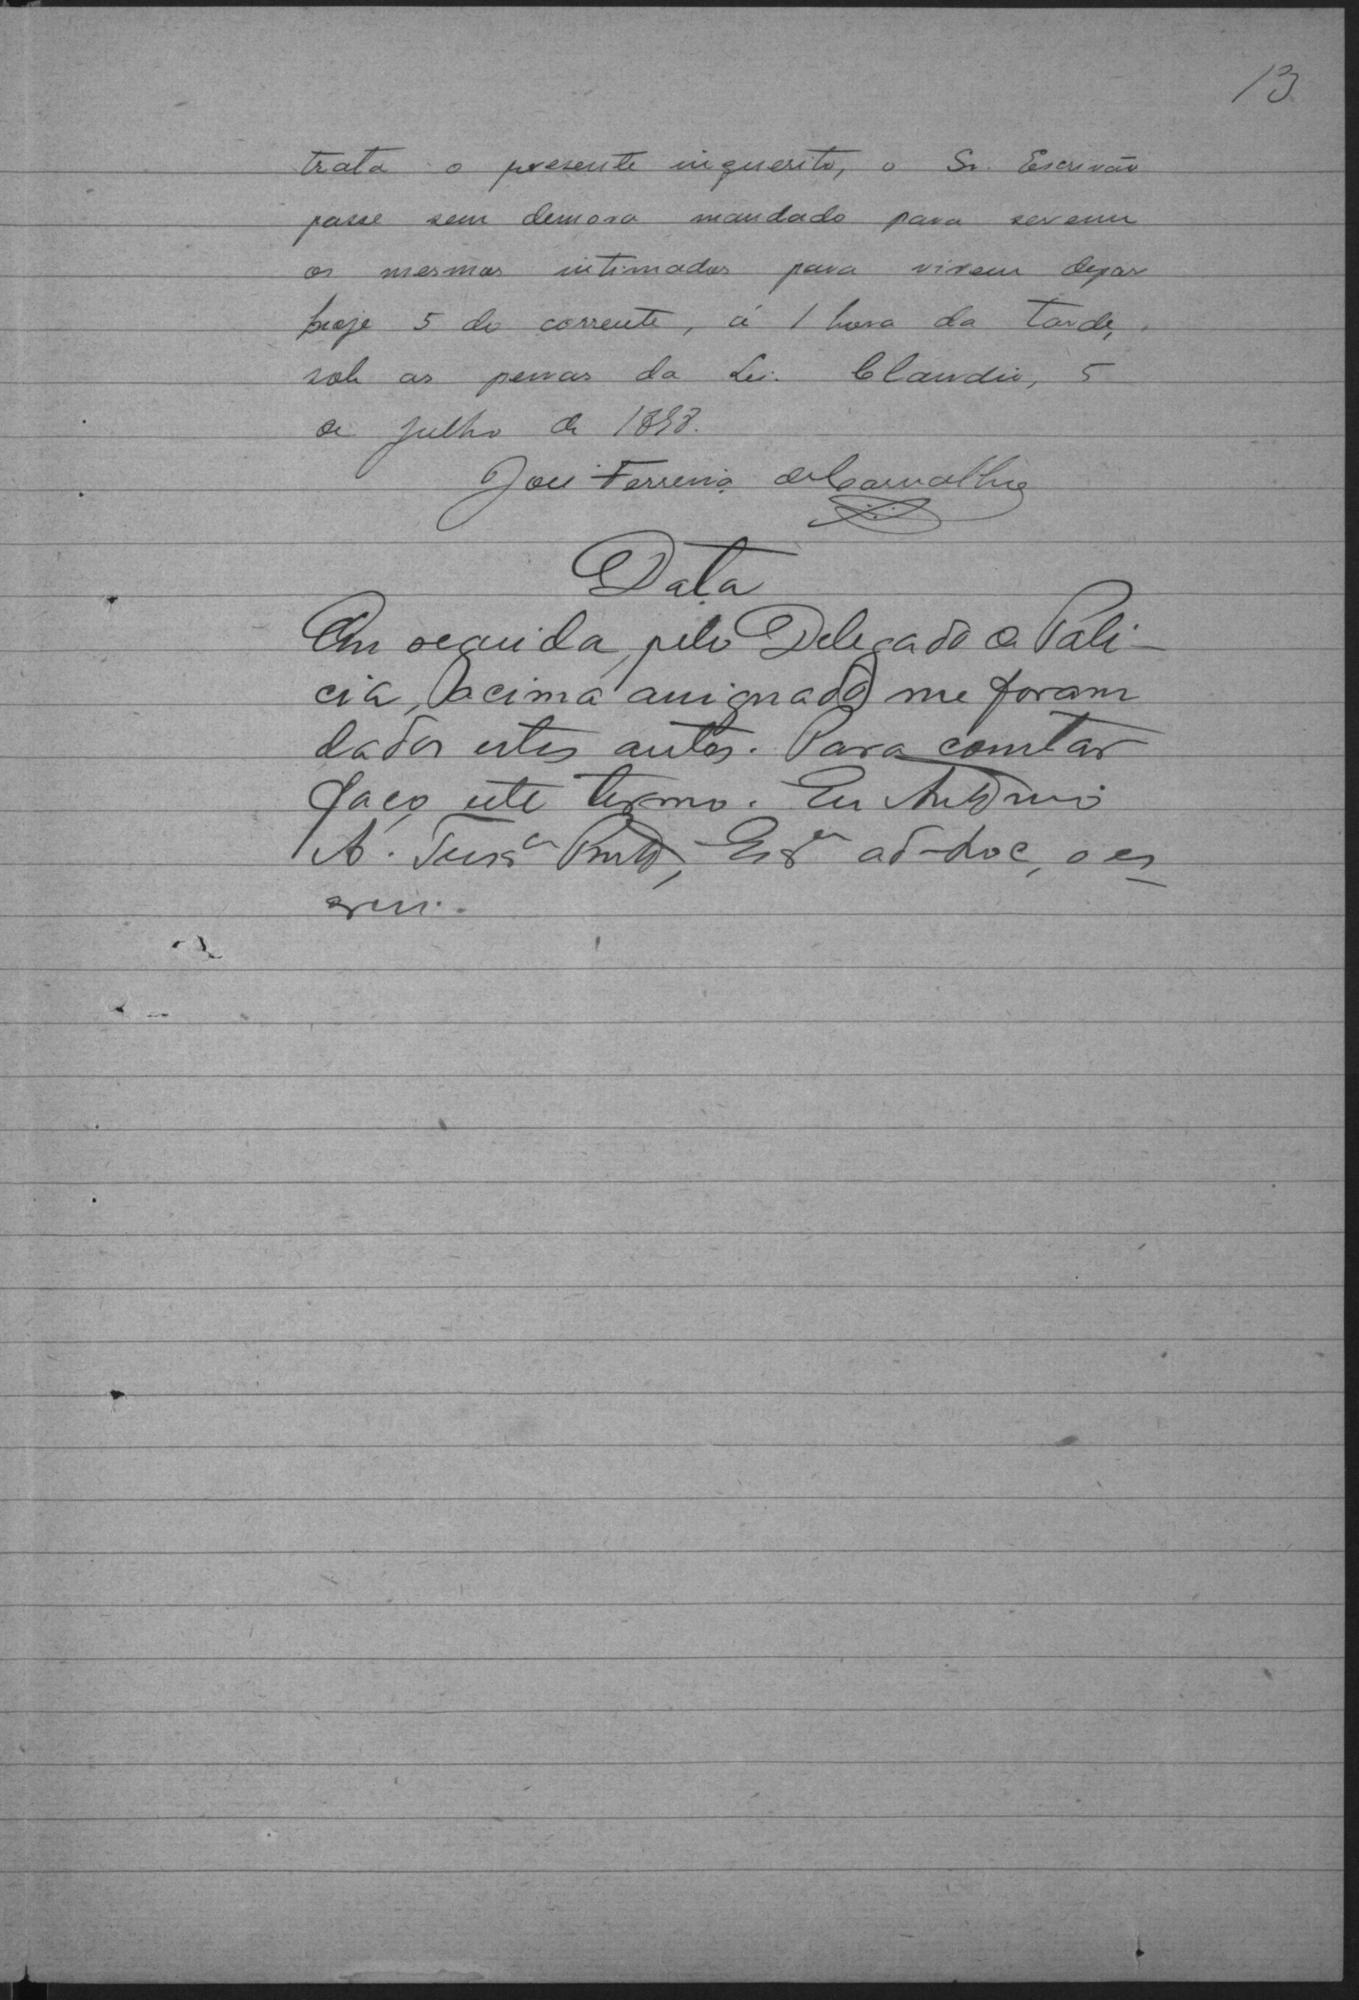 13
trata o presente inquerito, o Sr. Escrivão
passe sem demora mandado para serem
os mesmos intimados para virem depor
hoje 5 do corrente, á 1 hora da tarde,
sob as penas da Lei. Claudio, 5
de Julho de
José Ferreira de Carvalho
Data
Em seguida, pelo Delegado de Poli-
cia, (acima assignado) me foram
dados estes autos. Para constar
faço este termo. Eu Antonio
A. Pinto, ad-hoc, o es
crevi.